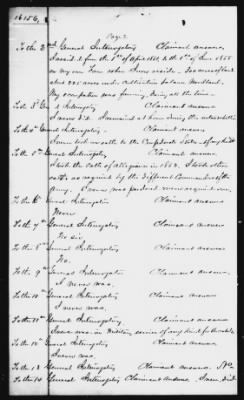 16156,
Page 2
To the 2nd General Interrogatory Claimant answers.
I resided from the 1st of April 1861, to the 1st of June 1865
on my own Farm where I now reside.
acres under cultivation balance woodland.
My occupation was farming, during all the time.
To the 3d General Interrogatory Claimant answers
I never did. I remained at home during the
To the 4th General Interrogatory. Claimant answers.
I never took an oath to the Confederate States of any kind
To the 5th General Interrogatory Claimant answers.
I took the oath of allegiance in 186 I took other
oaths as required by the different Commanders of the
Army. pardoned never required one.
To the 6th General Interrogatory Claimant answers
None
To the 7th General Interrogatory Claimant answers
No Sir
To the 8th General Interrogatory Claimant answers
No.
To the 9th General Interrogatory Claimant answers.
I never was.
To the 10th General Interrogatory Claimant answers.
I never was.
To the 11th General Interrogatory Claimant answers.
I never was in Military service of any kind
To the 12th General Interrogatory Claimant answers.
I never was.
To the 13 General Interrogatory Claimant answers. No
To the 14 General Interrogatory Claimant answers. I never did